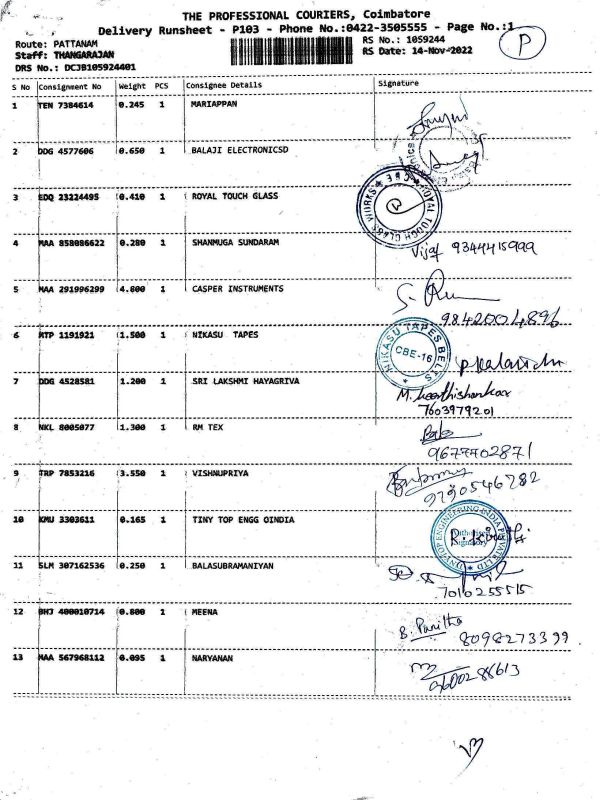 THE PROFESSIONAL COURIERS, Coimbatore
Delivery Runsheet - P103 - Phone No.:0422-3505555 - Page No.:1
P
Route: PATTANAM
RS No.: 1059244
Staff: THANGARAJAN
RS Date: 14-Nov-2022
DRS No.: DCJB105924401
S No Consignment No Weight PCS Consignee Details Signature
1 TEN 7384614 0.245 1 MARIAPPAN
2 DDG 4577606 0.650 1 BALAJI ELECTRONICSD
3 EDQ 23224495 0.410 1 ROYAL TOUCH GLASS
ROYAL TOUGH GLASS WORKS ★ CBE ★
4 MAA 858086622 0.280 1 SHANMUGA SUNDARAM
Vijay 9344415999
5 MAA 291996299 4.800 1 CASPER INSTRUMENTS
9842004896
6 MTP 1191921 1.500 1 NIKASU TAPES
NIKASU TAPES BELTS
CBE-16
7 DDG 4528581 1.200 1 SRI LAKSHMI HAYAGRIVA
7603979201
8 NKL 8005077 1.300 1 RM TEX
9 TRP 7853216 3.550 1 VISHNUPRIYA
9790546782
10 KMU 3303611 0.165 1 TINY TOP ENGG OINDIA
Authorised
Signatory
11 SLM 307162536 0.250 1 BALASUBRAMANIYAN
7010255515
12 BHJ 400010714 0.800 1 MEENA
8098273399
13 MAA 567968112 0.095 1 NARYANAN
9600288613